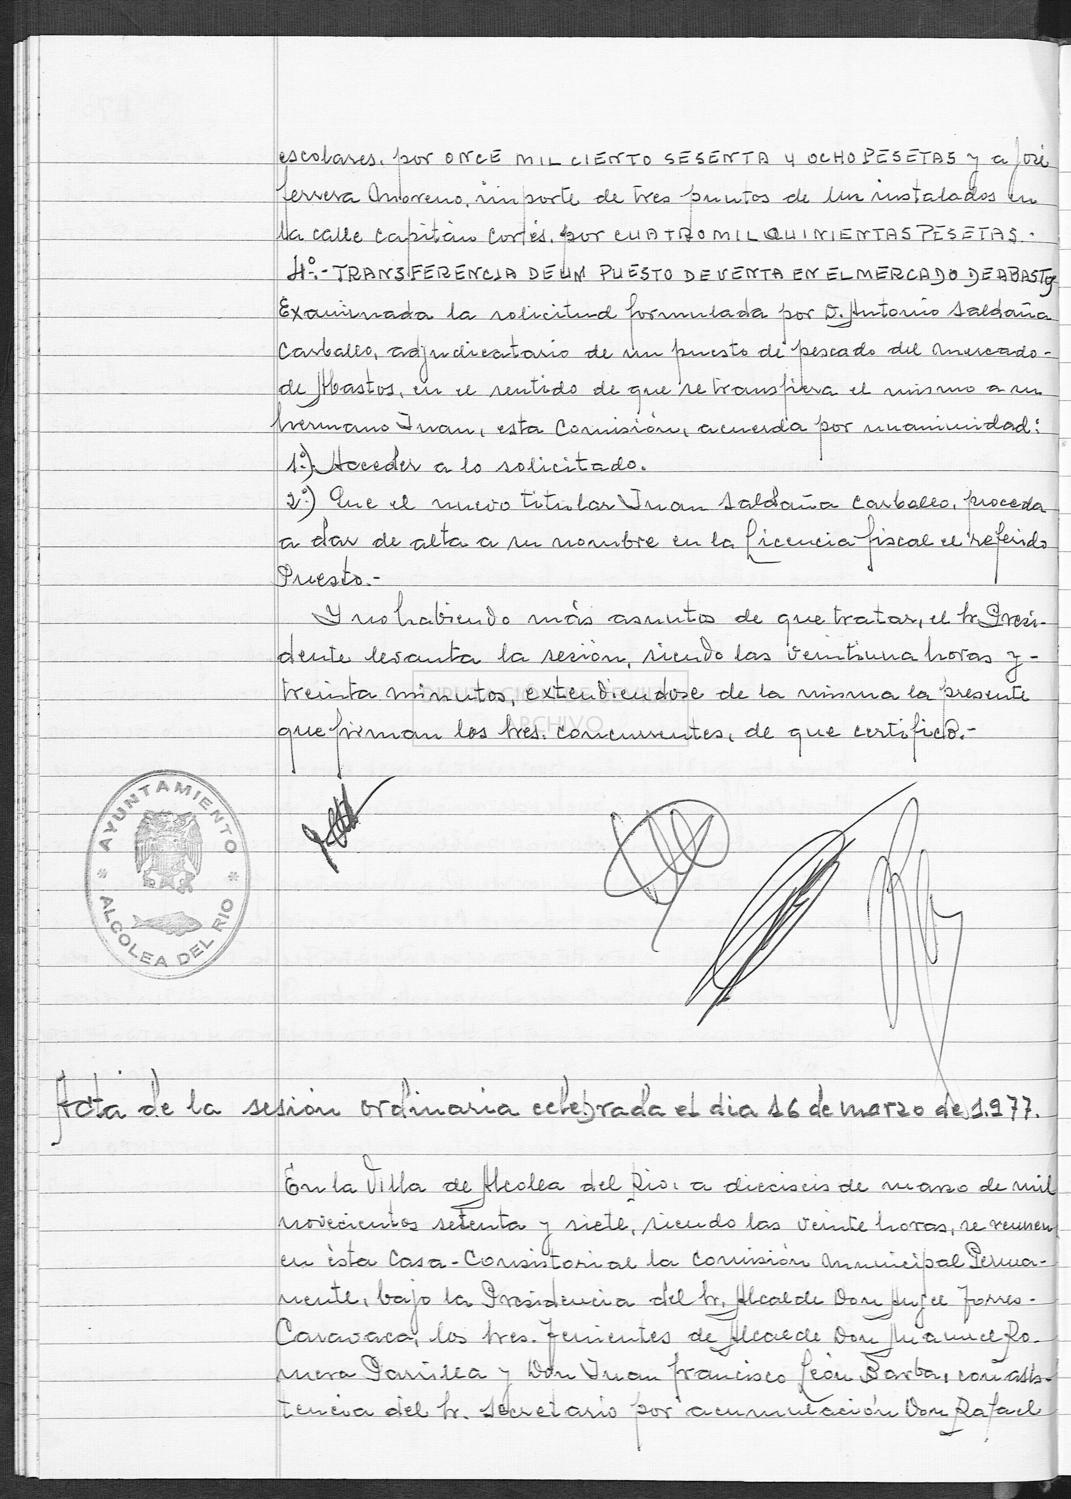 escolares, por ONCE MIL CIENTO SESENTA Y OCHO PESETAS y a José
Ferrera Moreno, importe de tres puntos de luz instalados en
la calle Capitán Cortés, por CUATRO MIL QUINIENTAS PESETAS.-
4º.- TRANSFERENCIA DE UN PUESTO DE VENTA EN EL MERCADO DE ABASTOS
Examinada la solicitud formulada por D. Antonio Saldaña
Carballo, adjudicatario de un puesto de pescado del mercado-
de Abastos, en el sentido de que se transfiera el mismo a su
hermano Juan, esta Comisión, acuerda por unanimidad:
1º) Acceder a lo solicitado.
2º) Que el nuevo titular Juan Saldaña Carballo, proceda
a dar de alta a su nombre en la Licencia fiscal el referido
Puesto.-
Y no habiendo más asuntos de que tratar, el Sr. Presi-
dente levanta la sesión, siendo las veintiuna horas y-
treinta minutos, extendiendose de la misma la presente
que firman los Sres. concurrentes, de que certifico.-
DIPUTACIÓN DE SEVILLA
ARCHIVO
* AYUNTAMIENTO *
ALCOLEA DEL RIO
Acta de la sesión ordinaria celebrada el dia 16 de marzo de 1.977.
En la Villa de Alcolea del Rio, a dieciseis de marzo de mil
novecientos setenta y siete, siendo las veinte horas, se reunen
en ésta Casa-Consistorial la Comisión Municipal Perma-
nente, bajo la Presidencia del Sr. Alcalde Don Angel Torres-
Caravaca, los Sres. Tenientes de Alcalde Don Manuel Ro-
mera Parrilla y Don Juan Francisco León Barba, con asis-
tencia del Sr. Secretario por acumulación Don Rafael